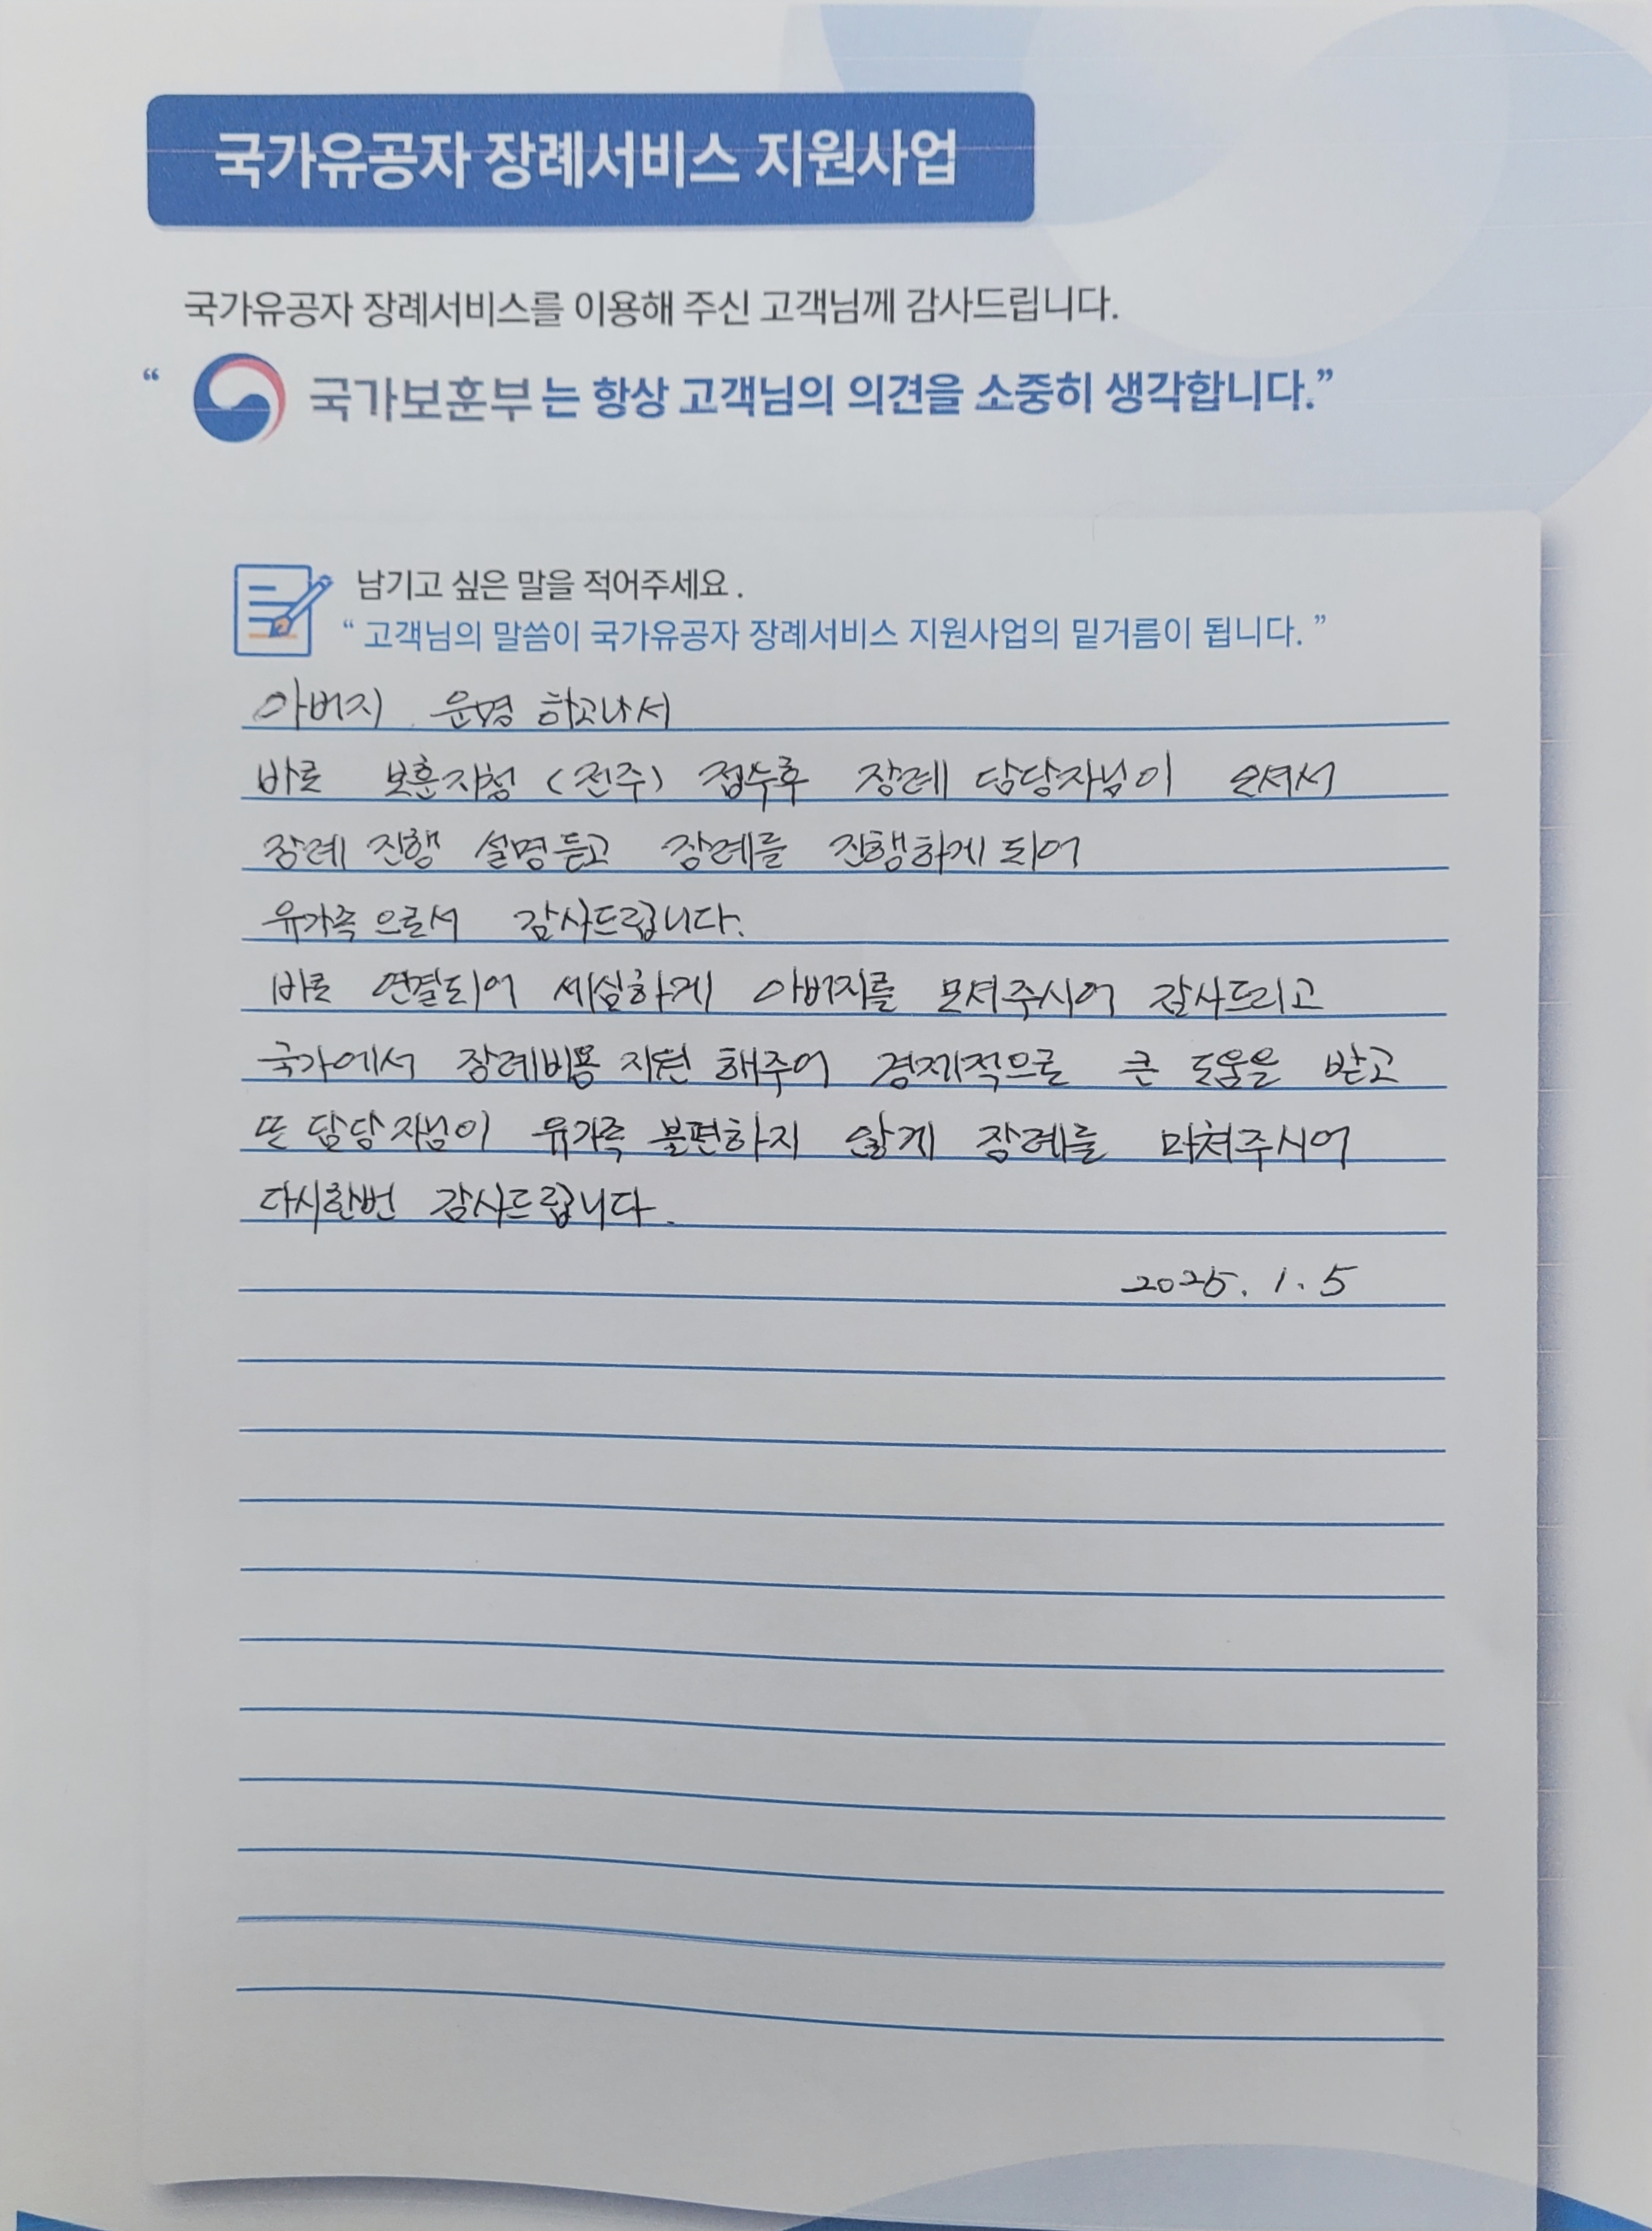 국가유공자 장례서비스 지원사업
국가유공자 장례서비스를 이용해 주신 고객님께 감사드립니다.
“ 국가보훈부는 항상 고객님의 의견을 소중히 생각합니다.”
남기고 싶은 말을 적어주세요.
“ 고객님의 말씀이 국가유공자 장례서비스 지원사업의 밑거름이 됩니다. ”
아버지 운명 하고나서
바로 보훈지청 (전주) 접수후 장례 담당자님이 오셔서
장례 진행 설명듣고 장례를 진행하게 되어
유가족으로서 감사드립니다.
바로 연결되어 세심하게 아버지를 모셔주시어 감사드리고
국가에서 장례비용 지원 해주어 경제적으로 큰 도움을 받고
또 담당자님이 유가족 불편하지 않게 장례를 마쳐주시어
다시한번 감사드립니다.
2025. 1. 5